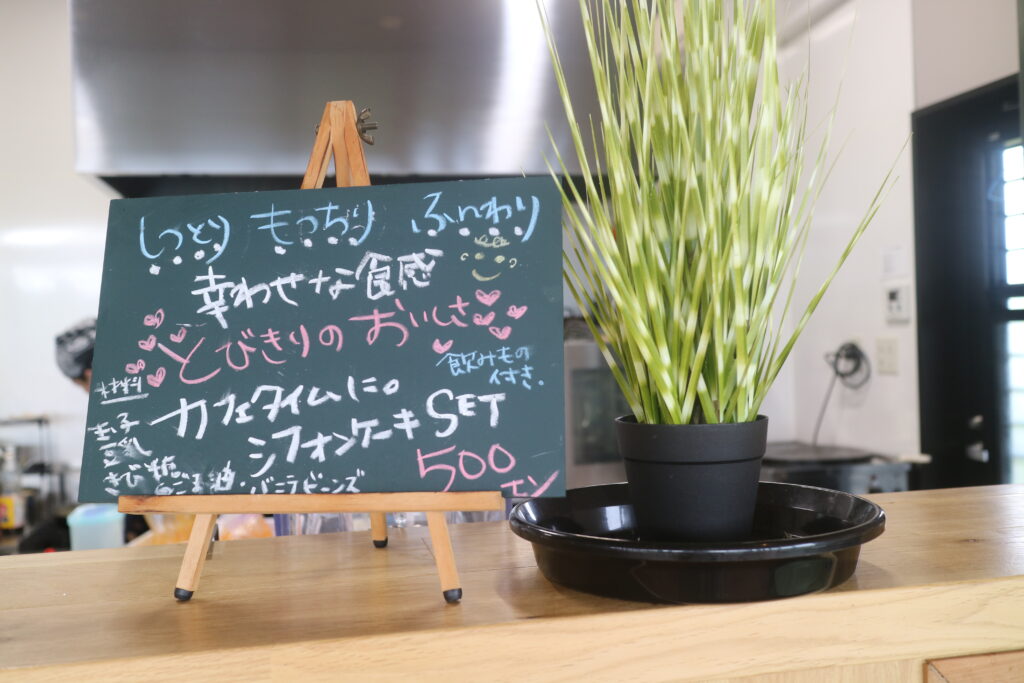 しっとり もっちり ふんわり
幸わせな食感
とびきりの おいしさ
飲みもの
付き。
カフェタイムに。
シフォンケーキ SET
500エン
材料
玉子
豆乳
きび糖
ごま油・バニラビーンズ